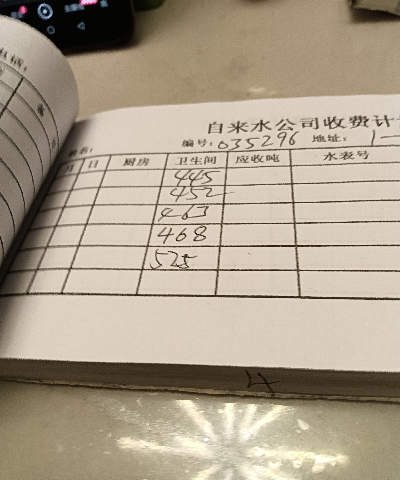 自来水公司收费计
编号:035296 地址:1一
月 日 厨房 卫生间 应收吨 水表号
445
452
463
468
525
4